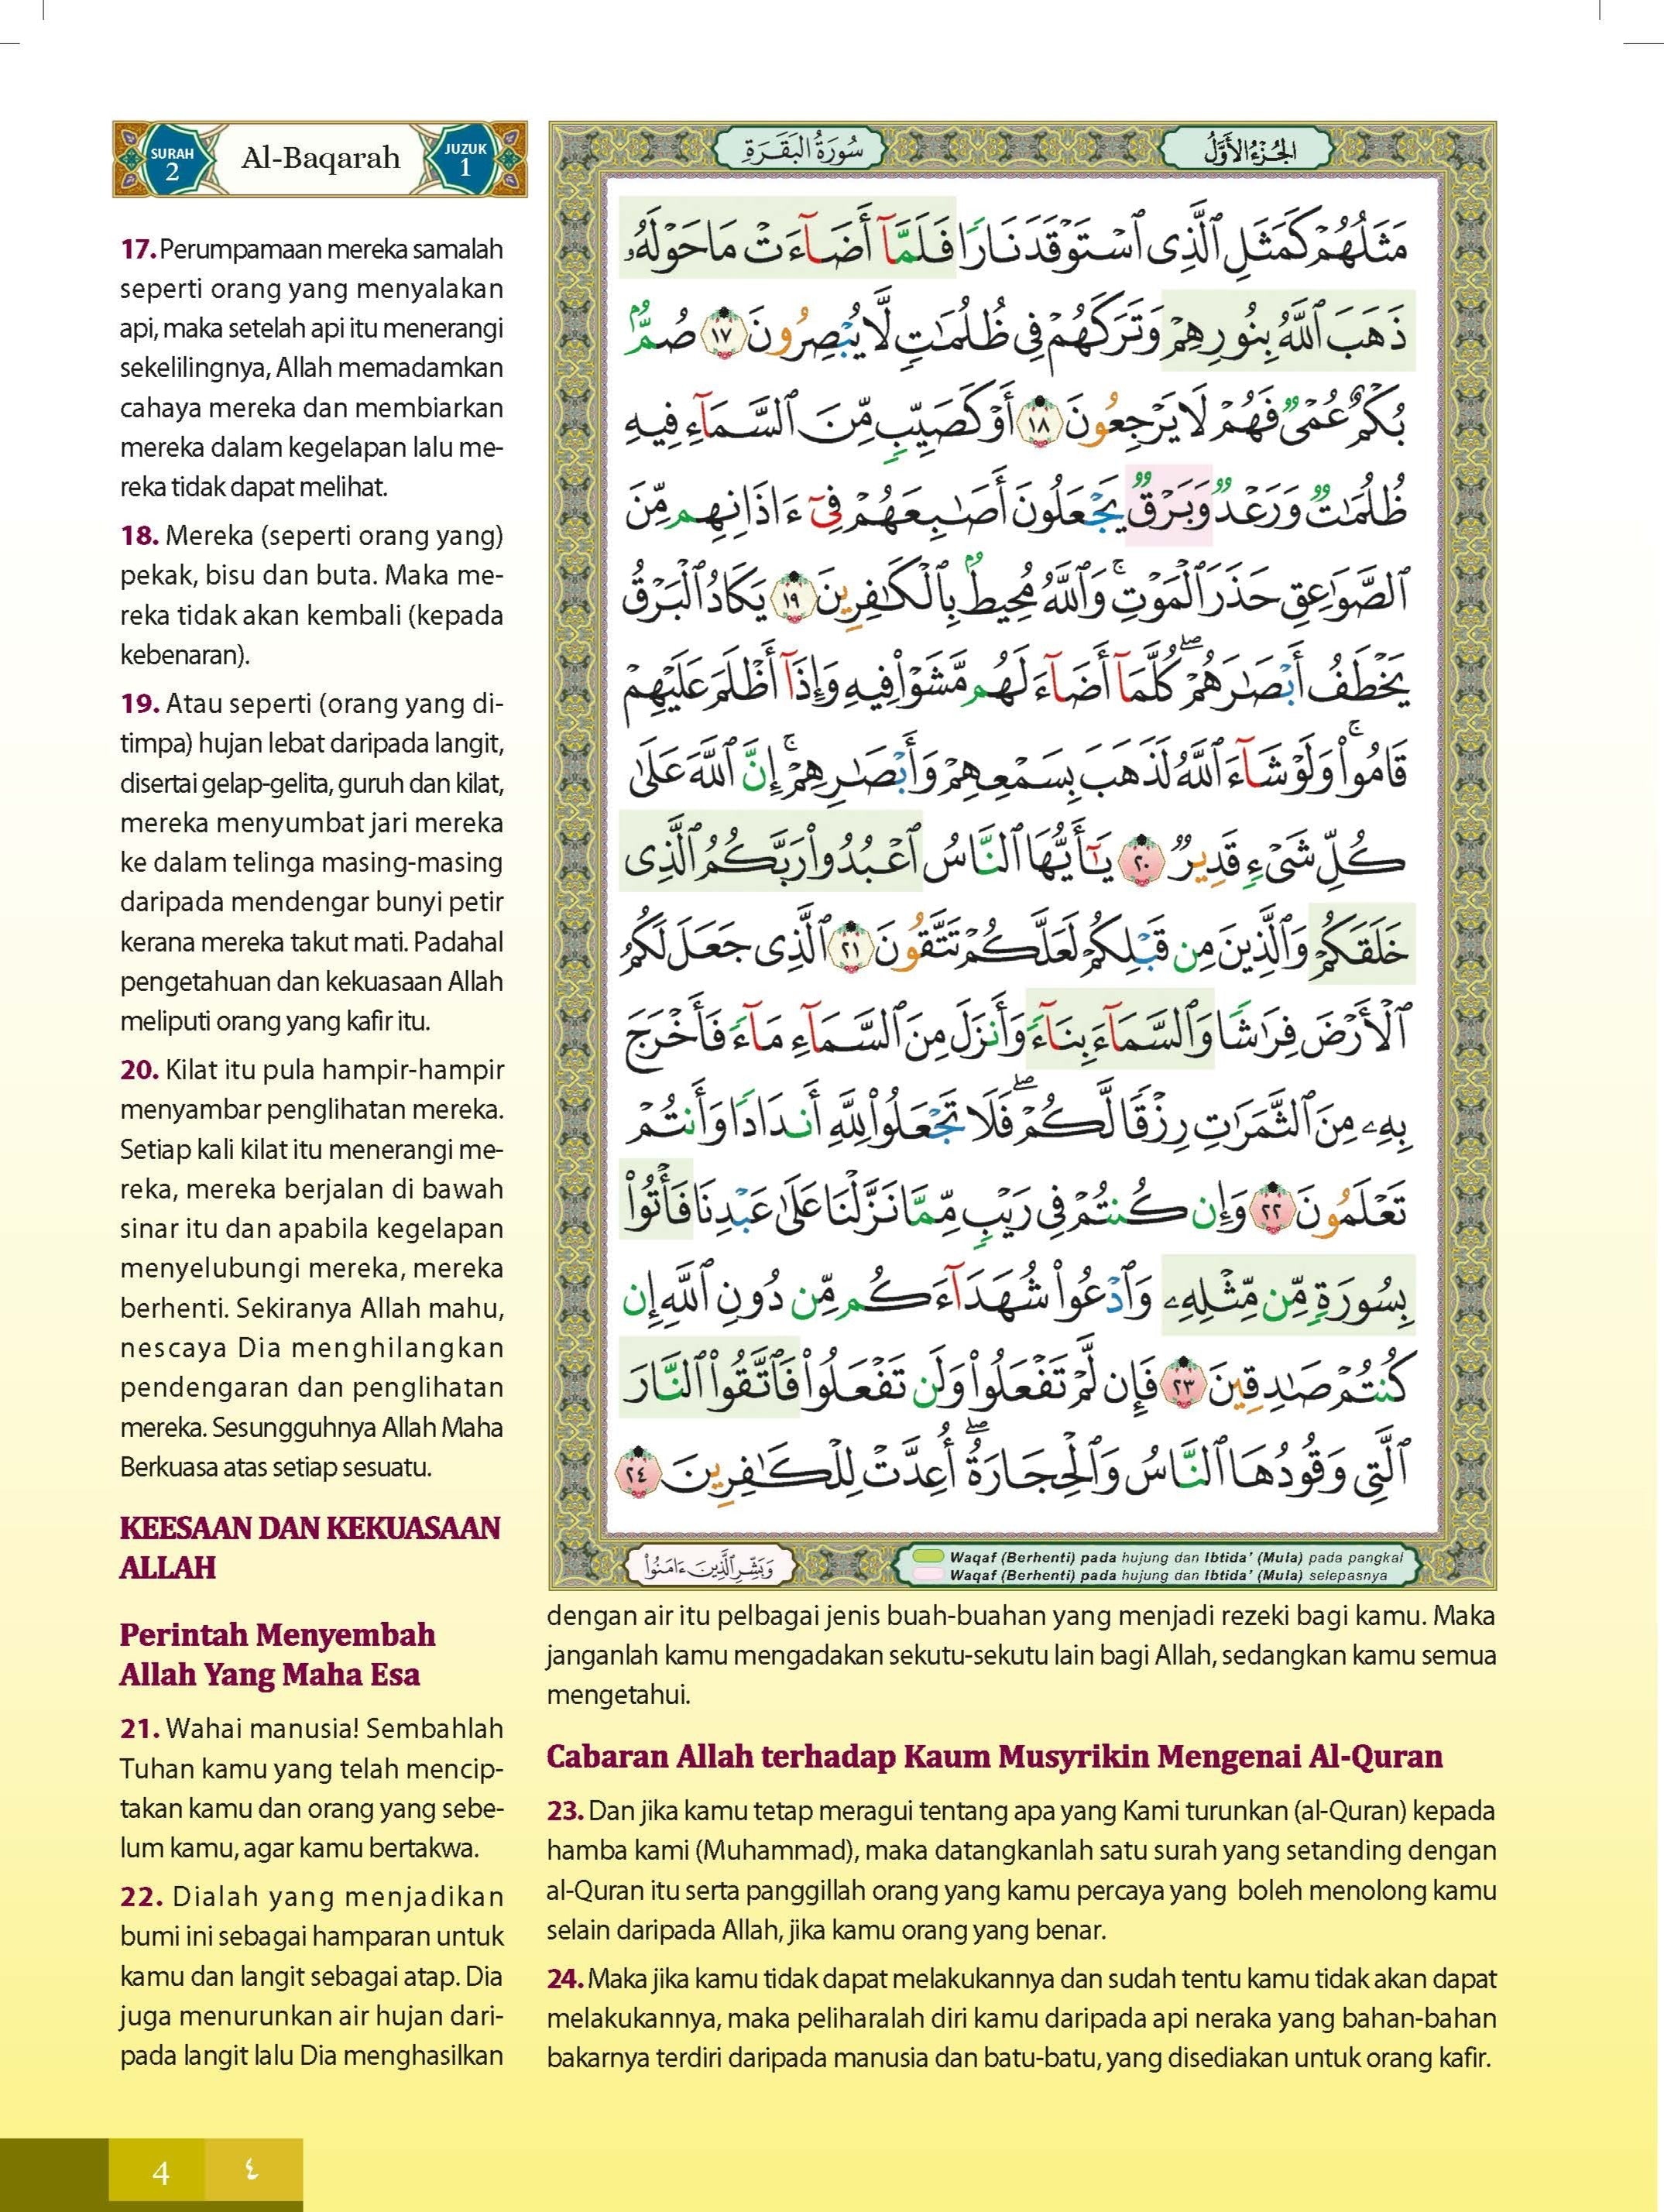 SURAH
2
Al-Baqarah
JUZUK
1
17. Perumpamaan mereka samalah
seperti orang yang menyalakan
api, maka setelah api itu menerangi
sekelilingnya, Allah memadamkan
cahaya mereka dan membiarkan
mereka dalam kegelapan lalu me-
reka tidak dapat melihat.
18. Mereka (seperti orang yang)
pekak, bisu dan buta. Maka me-
reka tidak akan kembali (kepada
kebenaran).
19. Atau seperti (orang yang di-
timpa) hujan lebat daripada langit,
disertai gelap-gelita, guruh dan kilat,
mereka menyumbat jari mereka
ke dalam telinga masing-masing
daripada mendengar bunyi petir
kerana mereka takut mati. Padahal
pengetahuan dan kekuasaan Allah
meliputi orang yang kafir itu.
20. Kilat itu pula hampir-hampir
menyambar penglihatan mereka.
Setiap kali kilat itu menerangi me-
reka, mereka berjalan di bawah
sinar itu dan apabila kegelapan
menyelubungi mereka, mereka
berhenti. Sekiranya Allah mahu,
nescaya Dia menghilangkan
pendengaran dan penglihatan
mereka. Sesungguhnya Allah Maha
Berkuasa atas setiap sesuatu.
KEESAAN DAN KEKUASAAN
ALLAH
Perintah Menyembah
Allah Yang Maha Esa
21. Wahai manusia! Sembahlah
Tuhan kamu yang telah mencip-
takan kamu dan orang yang sebe-
lum kamu, agar kamu bertakwa.
22. Dialah yang menjadikan
bumi ini sebagai hamparan untuk
kamu dan langit sebagai atap. Dia
juga menurunkan air hujan dari-
pada langit lalu Dia menghasilkan
الجُزْءُ الأَوَّلُ
سُورَةُ البَقَرَةِ
مَثَلُهُمْ كَمَثَلِ ٱلَّذِى ٱسْتَوْقَدَ نَارًا فَلَمَّآ أَضَآءَتْ مَا حَوْلَهُۥ
ذَهَبَ ٱللَّهُ بِنُورِهِمْ وَتَرَكَهُمْ فِى ظُلُمَـٰتٍ لَّا يُبْصِرُونَ ١٧ صُمٌّۢ
بُكْمٌ عُمْىٌ فَهُمْ لَا يَرْجِعُونَ ١٨ أَوْ كَصَيِّبٍ مِّنَ ٱلسَّمَآءِ فِيهِ
ظُلُمَـٰتٌ وَرَعْدٌ وَبَرْقٌ يَجْعَلُونَ أَصَـٰبِعَهُمْ فِىٓ ءَاذَانِهِم مِّنَ
ٱلصَّوَٰعِقِ حَذَرَ ٱلْمَوْتِ ۚ وَٱللَّهُ مُحِيطٌۢ بِٱلْكَـٰفِرِينَ ١٩ يَكَادُ ٱلْبَرْقُ
يَخْطَفُ أَبْصَـٰرَهُمْ ۖ كُلَّمَآ أَضَآءَ لَهُم مَّشَوْا۟ فِيهِ وَإِذَآ أَظْلَمَ عَلَيْهِمْ
قَامُوا۟ ۚ وَلَوْ شَآءَ ٱللَّهُ لَذَهَبَ بِسَمْعِهِمْ وَأَبْصَـٰرِهِمْ ۚ إِنَّ ٱللَّهَ عَلَىٰ
كُلِّ شَىْءٍ قَدِيرٌ ٢٠ يَـٰٓأَيُّهَا ٱلنَّاسُ ٱعْبُدُوا۟ رَبَّكُمُ ٱلَّذِى
خَلَقَكُمْ وَٱلَّذِينَ مِن قَبْلِكُمْ لَعَلَّكُمْ تَتَّقُونَ ٢١ ٱلَّذِى جَعَلَ لَكُمُ
ٱلْأَرْضَ فِرَٰشًا وَٱلسَّمَآءَ بِنَآءً وَأَنزَلَ مِنَ ٱلسَّمَآءِ مَآءً فَأَخْرَجَ
بِهِۦ مِنَ ٱلثَّمَرَٰتِ رِزْقًا لَّكُمْ ۖ فَلَا تَجْعَلُوا۟ لِلَّهِ أَندَادًا وَأَنتُمْ
تَعْلَمُونَ ٢٢ وَإِن كُنتُمْ فِى رَيْبٍ مِّمَّا نَزَّلْنَا عَلَىٰ عَبْدِنَا فَأْتُوا۟
بِسُورَةٍ مِّن مِّثْلِهِۦ وَٱدْعُوا۟ شُهَدَآءَكُم مِّن دُونِ ٱللَّهِ إِن
كُنتُمْ صَـٰدِقِينَ ٢٣ فَإِن لَّمْ تَفْعَلُوا۟ وَلَن تَفْعَلُوا۟ فَٱتَّقُوا۟ ٱلنَّارَ
ٱلَّتِى وَقُودُهَا ٱلنَّاسُ وَٱلْحِجَارَةُ ۖ أُعِدَّتْ لِلْكَـٰفِرِينَ ٢٤
وَبَشِّرِ ٱلَّذِينَ ءَامَنُوا۟
Waqaf (Berhenti) pada hujung dan Ibtida' (Mula) pada pangkal
Waqaf (Berhenti) pada hujung dan Ibtida' (Mula) selepasnya
dengan air itu pelbagai jenis buah-buahan yang menjadi rezeki bagi kamu. Maka
janganlah kamu mengadakan sekutu-sekutu lain bagi Allah, sedangkan kamu semua
mengetahui.
Cabaran Allah terhadap Kaum Musyrikin Mengenai Al-Quran
23. Dan jika kamu tetap meragui tentang apa yang Kami turunkan (al-Quran) kepada
hamba kami (Muhammad), maka datangkanlah satu surah yang setanding dengan
al-Quran itu serta panggillah orang yang kamu percaya yang boleh menolong kamu
selain daripada Allah, jika kamu orang yang benar.
24. Maka jika kamu tidak dapat melakukannya dan sudah tentu kamu tidak akan dapat
melakukannya, maka peliharalah diri kamu daripada api neraka yang bahan-bahan
bakarnya terdiri daripada manusia dan batu-batu, yang disediakan untuk orang kafir.
4
٤